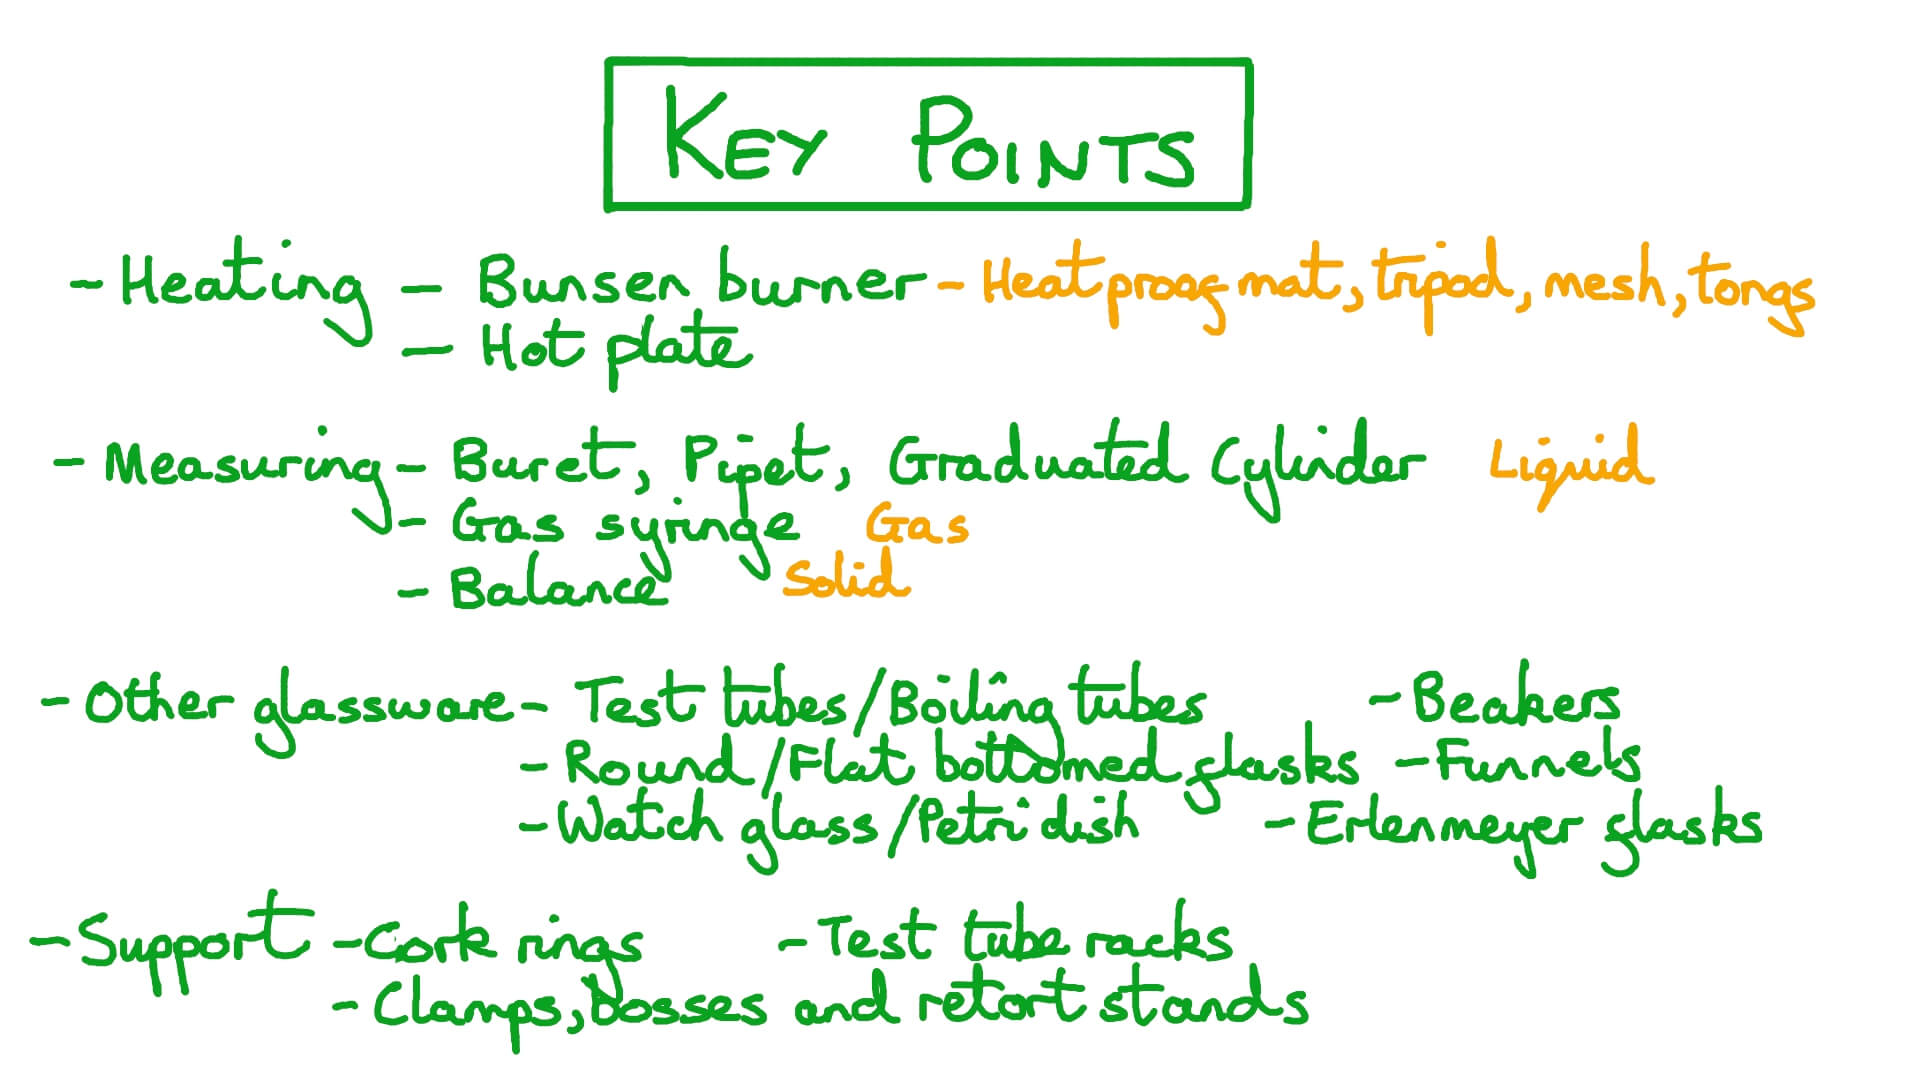 KEY POINTS
- Heating - Bunsen burner - Heatproof mat, tripod, mesh, tongs
- Hot plate
- Measuring - Buret, Pipet, Graduated Cylinder Liquid
- Gas syringe Gas
- Balance Solid
- Other glassware - Test tubes/Boiling tubes - Beakers
- Round/Flat bottomed flasks - Funnels
- Watch glass/Petri dish - Erlenmeyer flasks
- Support - Cork rings - Test tube racks
- Clamps, bosses and retort stands